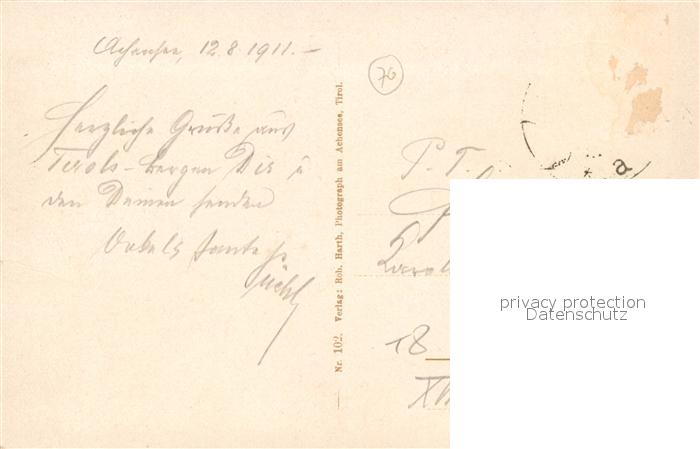 Achensee, 12.8.1911.–
76
Herzliche Grüße aus
Tirols-Bergen Dir u
den Deinen senden
Nr. 102. Verlag: Rob. Harth, Photograph am Achensee, Tirol.
P. T.
18
a
privacy protection
Datenschutz